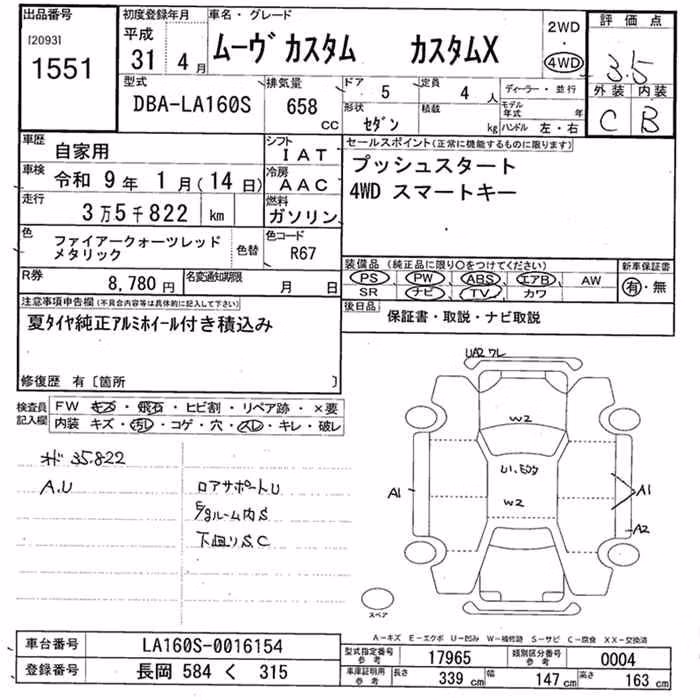 出品番号
[2093]
1551
初度登録年月
平成
31年 4月
車名・グレード
ムーヴ カスタム カスタムX
2WD
・
4WD
評価点
3.5
外装 内装
C B
型式
DBA-LA160S
排気量
658
CC
ドア 5
形状 セダン
定員 4 人
積載 kg
ディーラー・並行
モデル年式 年
ハンドル 左・右
車歴 自家用
シフト IAT
車検 令和 9年 1月(14日)
冷房 AAC
走行 3万5千822 km
燃料 ガソリン
色 ファイアークォーツレッド
メタリック
色替
色コード
R67
R券 8,780円
名変通知期限 月 日
セールスポイント(正常に機能するものに限ります)
プッシュスタート
4WD スマートキー
装備品(純正品に限り○をつけてください)
PS PW ABS エアB AW
SR ナビ TV カワ
新車保証書
有・無
後日品 保証書・取説・ナビ取説
注意事項申告欄(不具合内容等は具体的に記入して下さい)
夏タイヤ純正アルミホイール付き積込み
修復歴 有〔箇所 〕
検査員
記入欄
FW キズ・飛石・ヒビ割・リペア跡・×要
内装 キズ・汚レ・コゲ・穴・スレ・キレ・破レ
オド 35822
A.U
ロアサポートU
E/gルーム内S
下回りS.C
UA2 ワレ
W2
W2
A1
A1
A2
スペア
A-キズ E-エクボ U-凹み W-補修跡 S-サビ C-腐食 XX-交換済
車台番号 LA160S-0016154
登録番号 長岡 584 く 315
型式指定番号
参考
17965
類別区分番号
参考
0004
車庫証明用
参考
長さ 339 cm
幅 147 cm
高さ 163 cm